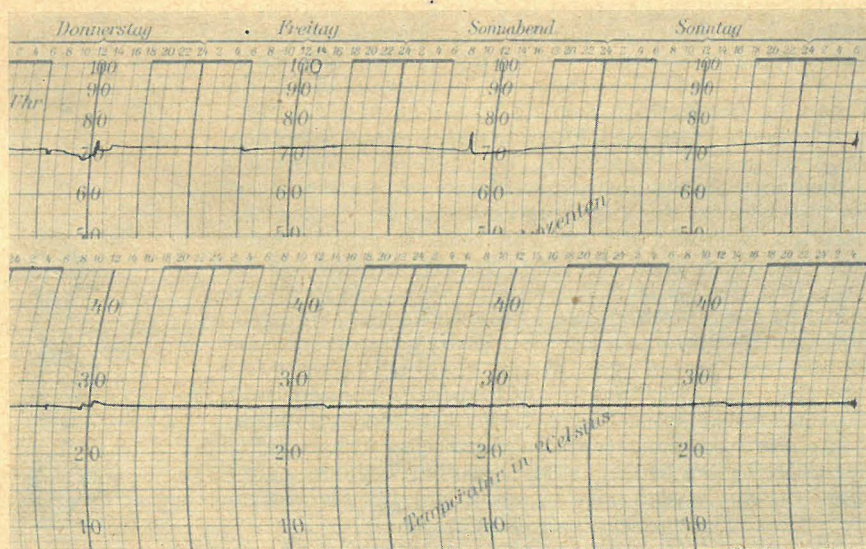 Donnerstag Freitag Sonnabend Sonntag
2 4 6 8 10 12 14 16 18 20 22 24 2 4 6 8 10 12 14 16 18 20 22 24 2 4 6 8 10 12 14 16 18 20 22 24 2 4 6 8 10 12 14 16 18 20 22 24 2 4 6
100 100 100 100
90 90 90 90
Uhr
80 80 80 80
70 70 70 70
60 60 60 60
50 50 50 50
24 2 4 6 8 10 12 14 16 18 20 22 24 2 4 6 8 10 12 14 16 18 20 22 24 2 4 6 8 10 12 14 16 18 20 22 24 2 4 6 8 10 12 14 16 18 20 22 24 2 4
40 40 40 40
30 30 30 30
20 20 20 20
Temperatur in °Celsius
10 10 10 10